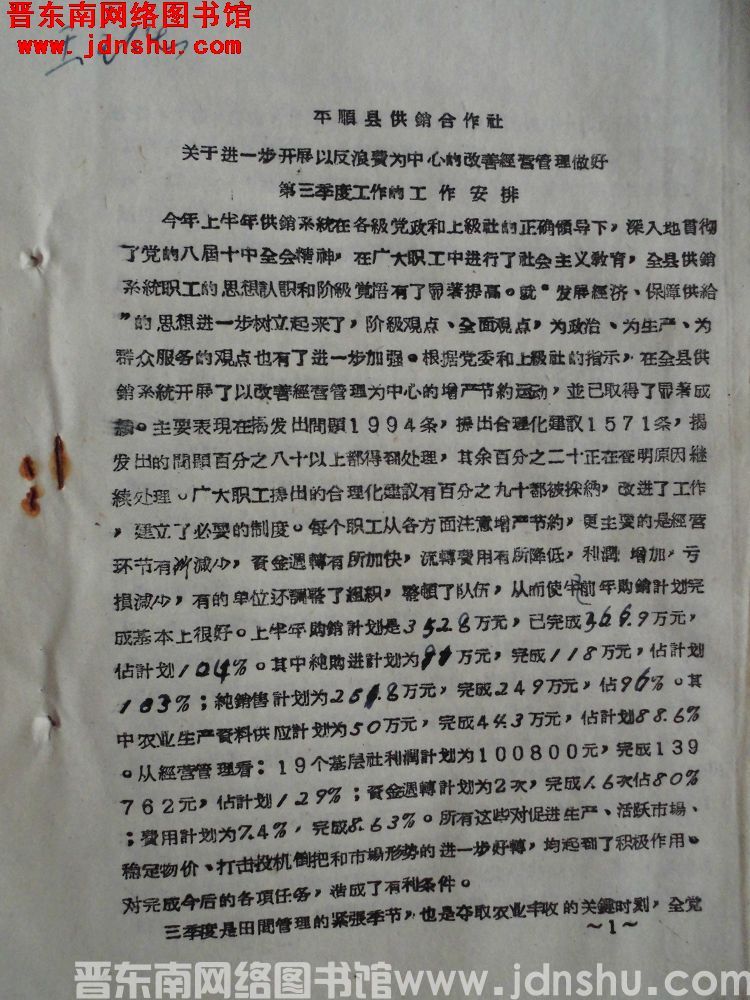 晋东南网络图书馆
www.jdnshu.com
平順县供銷合作社
关于进一步开展以反浪費为中心的改善經营管理做好
第三季度工作的工作安排
今年上半年供銷系統在各級党政和上級社的正确領导下，深入地貫彻
了党的八屆十中全会精神，在广大职工中进行了社会主义教育，全县供銷
系統职工的思想認识和阶級覚悟有了显著提高。就“发展經济、保障供給
”的思想进一步树立起来了，阶級观点、全面观点，为政治、为生产、为
群众服务的观点也有了进一步加强。根据党委和上級社的指示，在全县供
銷系統开展了以改善經营管理为中心的增产节約运动，並已取得了显著成
績。主要表現在揭发出問題1994条，提出合理化建議1571条，揭
发出的問題百分之八十以上都得到处理，其余百分之二十正在查明原因継
續处理。广大职工提出的合理化建議有百分之九十都被採納，改进了工作
，建立了必要的制度。每个职工从各方面注意增产节約，更主要的是經营
环节有所减少，資金週轉有所加快，流轉費用有所降低，利潤增加，亏
損减少，有的单位还調整了組织，整頓了队伍，从而使半年购銷計划完
成基本上很好。上半年购銷計划是352.8万元，已完成366.9万元，
佔計划104%。其中純购进計划为91万元，完成118万元，佔計划
103%；純銷售計划为261.8万元，完成249万元，佔96%。其
中农业生产資料供应計划为50万元，完成44.3万元，佔計划88.6%
。从經营管理看：19个基层社利潤計划为100800元，完成139
762元，佔計划129%；資金週轉計划为2次，完成1.6次佔80%
；費用計划为7.4%，完成8.63%。所有这些对促进生产、活跃市場、
稳定物价、打击投机倒把和市場形势的进一步好轉，均起到了积极作用。
对完成今后的各項任务，造成了有利条件。
三季度是田間管理的紧張季节，也是夺取农业丰收的关鍵时刻，全党
～1～
晋东南网络图书馆www.jdnshu.com